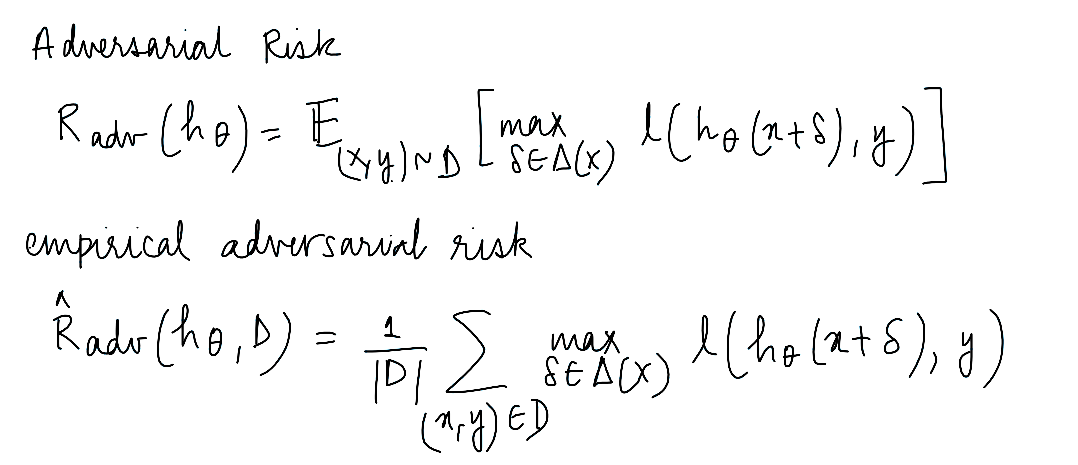 Adversarial Risk
R_adv (h_θ) = 𝔼_(x,y)~D [ max_δ∈Δ(x) l(h_θ(x+δ), y) ]
empirical adversarial risk
R̂_adv (h_θ, D) = 1/|D| ∑_(x,y)∈D max_δ∈Δ(x) l(h_θ(x+δ), y)